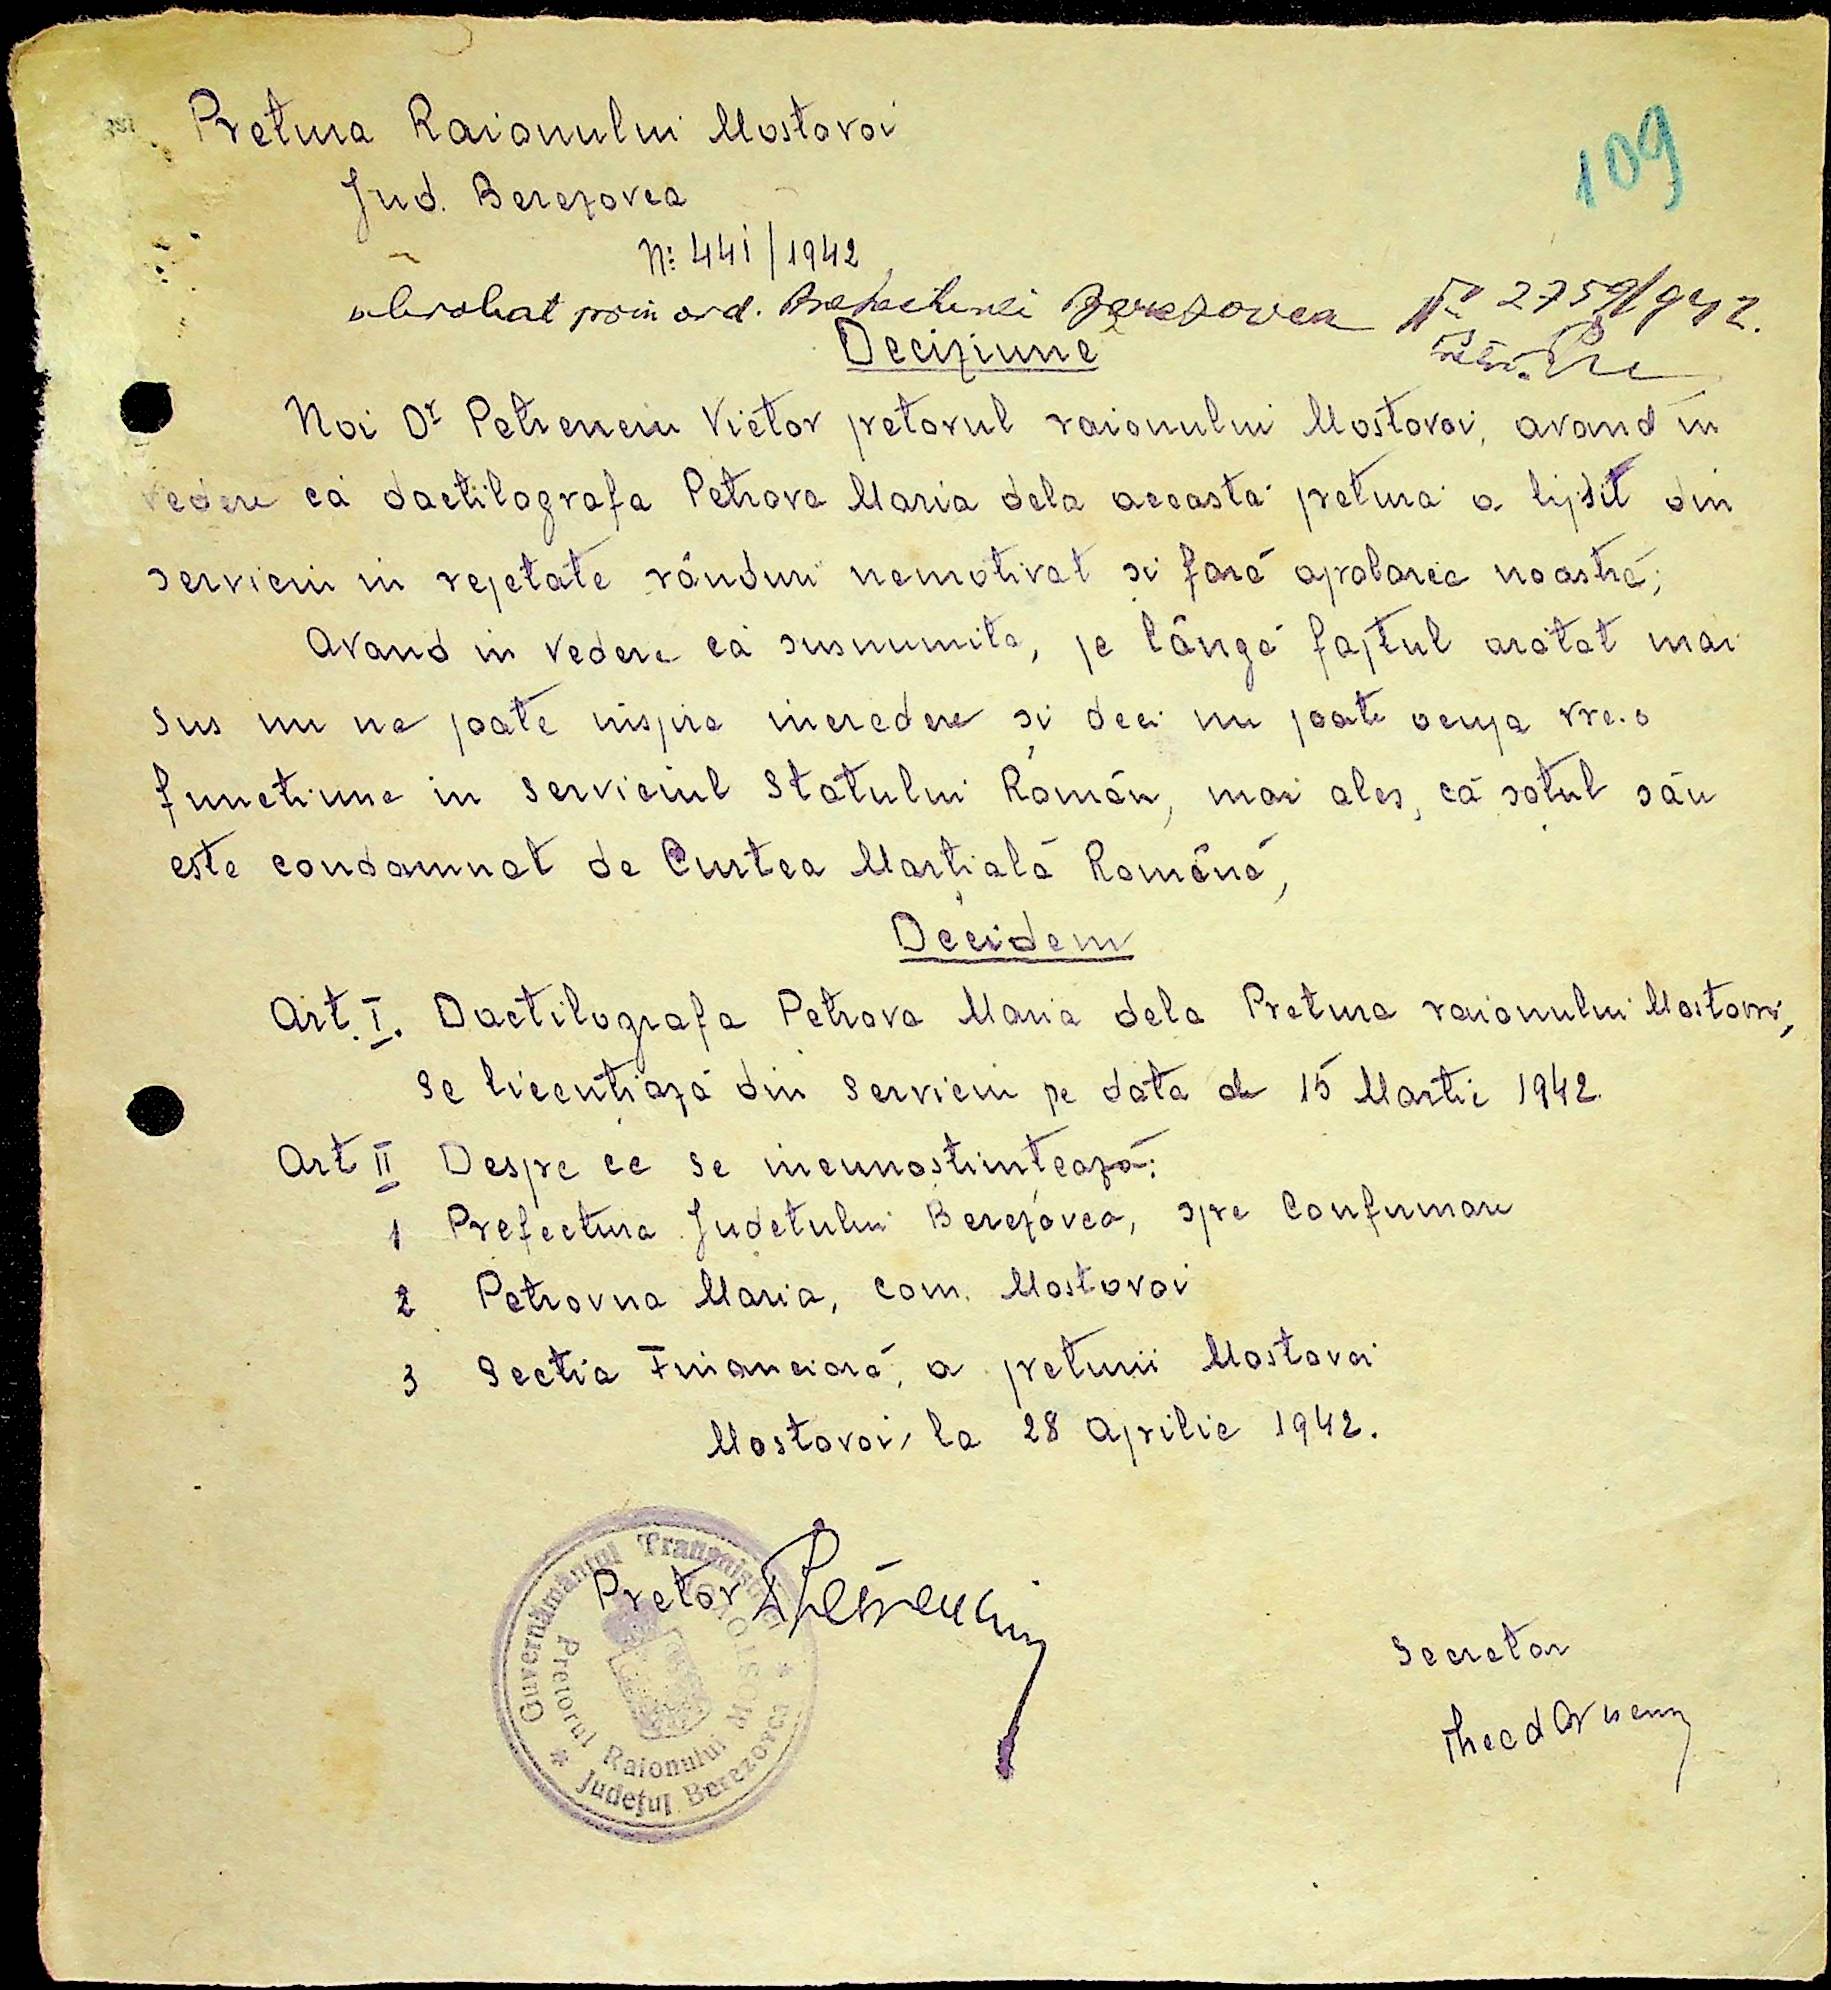 Pretura Raionului Mostovoi
109
Jud. Berezovca
N: 441/1942
abrobat prin ord. Brefecturei Berezovca № 2759/942.
Deciziune
Noi Dr Petrenciu Victor pretorul raionului Mostovoi, avand in
vedere că dactilografa Petrova Maria dela aceasta pretura a lipsit din
serviciu in repetate rânduri nemotivat și fară aprobarea noastră;
Avand in vedere că susnumita, pe lângă faptul arătat mai
sus nu ne poate inspira incredere și deci nu poate ocupa vre-o
functiune in serviciul Statului Român, mai ales, că soțul său
este condamnat de Curtea Marțială Română,
Decidem
Art. I. Dactilografa Petrova Maria dela Pretura raionului Mostovoi,
se licentiază din serviciu pe data de 15 Martie 1942.
Art II Despre ce se incunostintează:
1 Prefectura Judetului Berezovca, spre Confirmare
2 Petrovna Maria, com. Mostovoi
3 Sectia Financiară, a preturii Mostovoi
Mostovoi, la 28 Aprilie 1942.
Pretor Petrenciu
Guvernământul Transnistriei
Pretorul Raionului MOSTOVOI
* Județul Berezovca *
Secretar